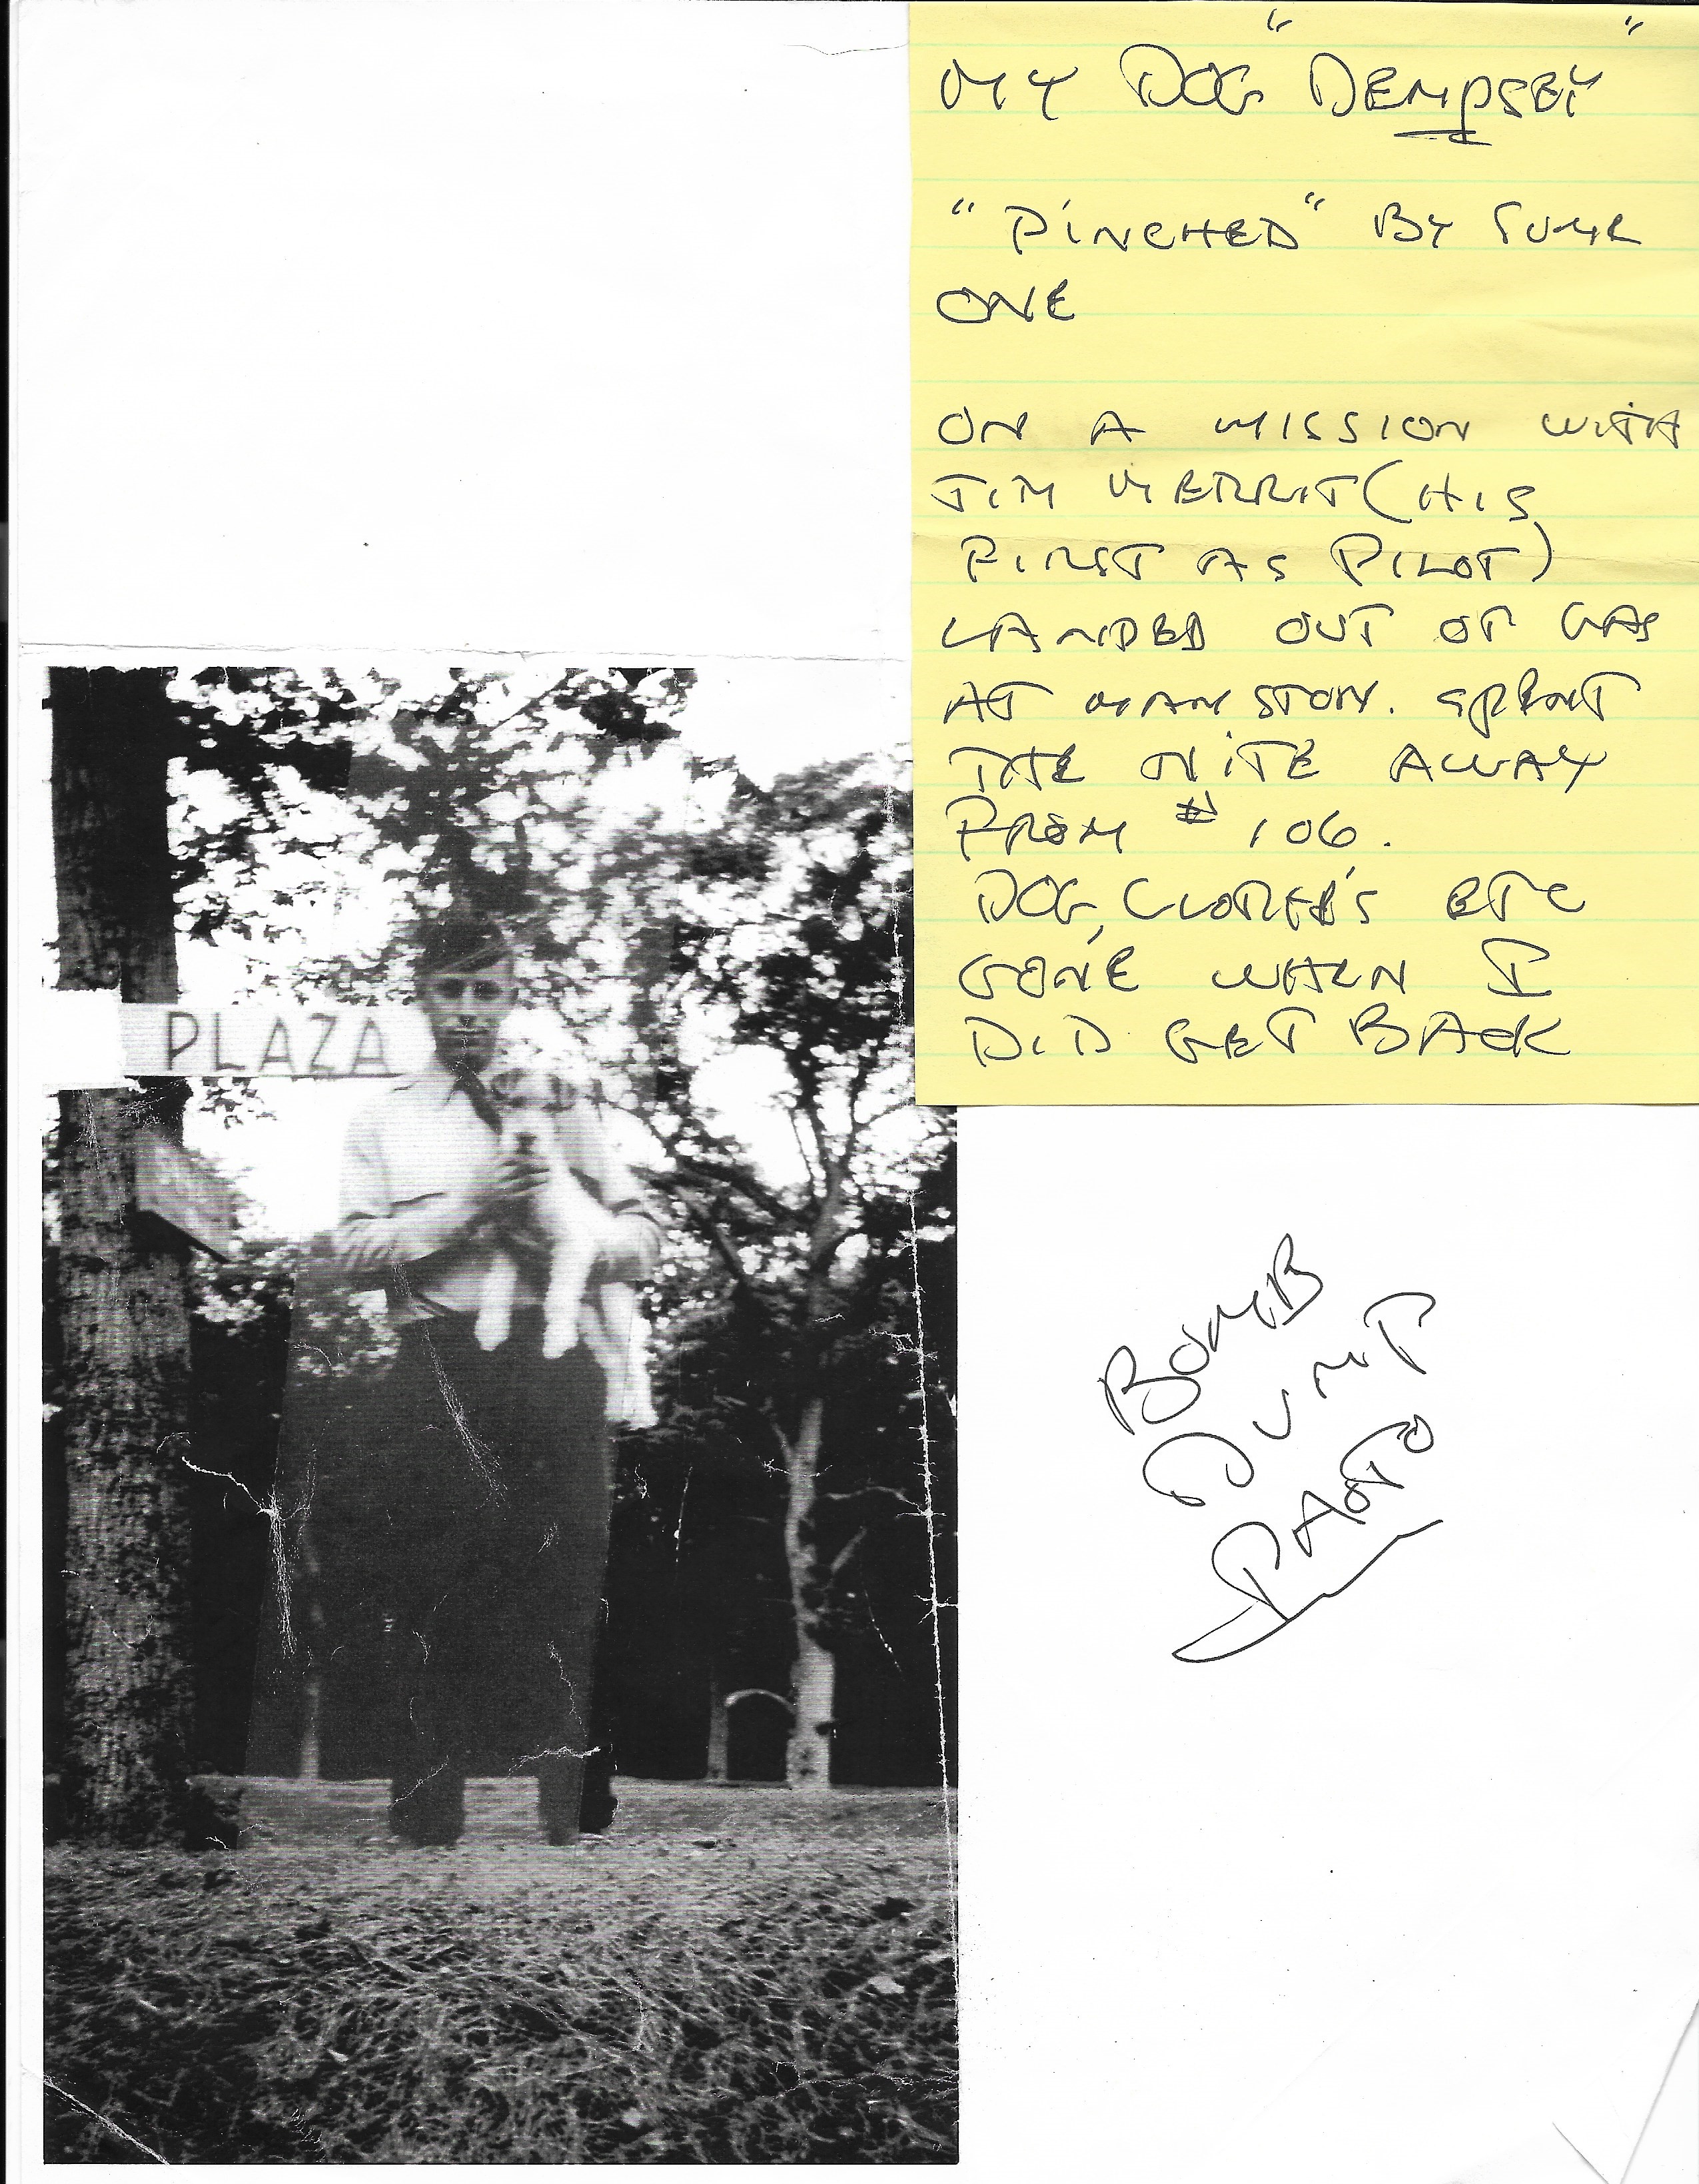 MY DOG "DEMPSEY"
"PINCHED" BY SOME
ONE
ON A MISSION WITH
JIM MERRIT (HIS
FIRST AS PILOT)
LANDED OUT OF GAS
AT MANSTON. SPENT
THE NITE AWAY
FROM # 106.
DOG, CLOTHES'S ETC
GONE WHEN I
DID GET BACK
PLAZA
BOMB
DUMP
PHOTO